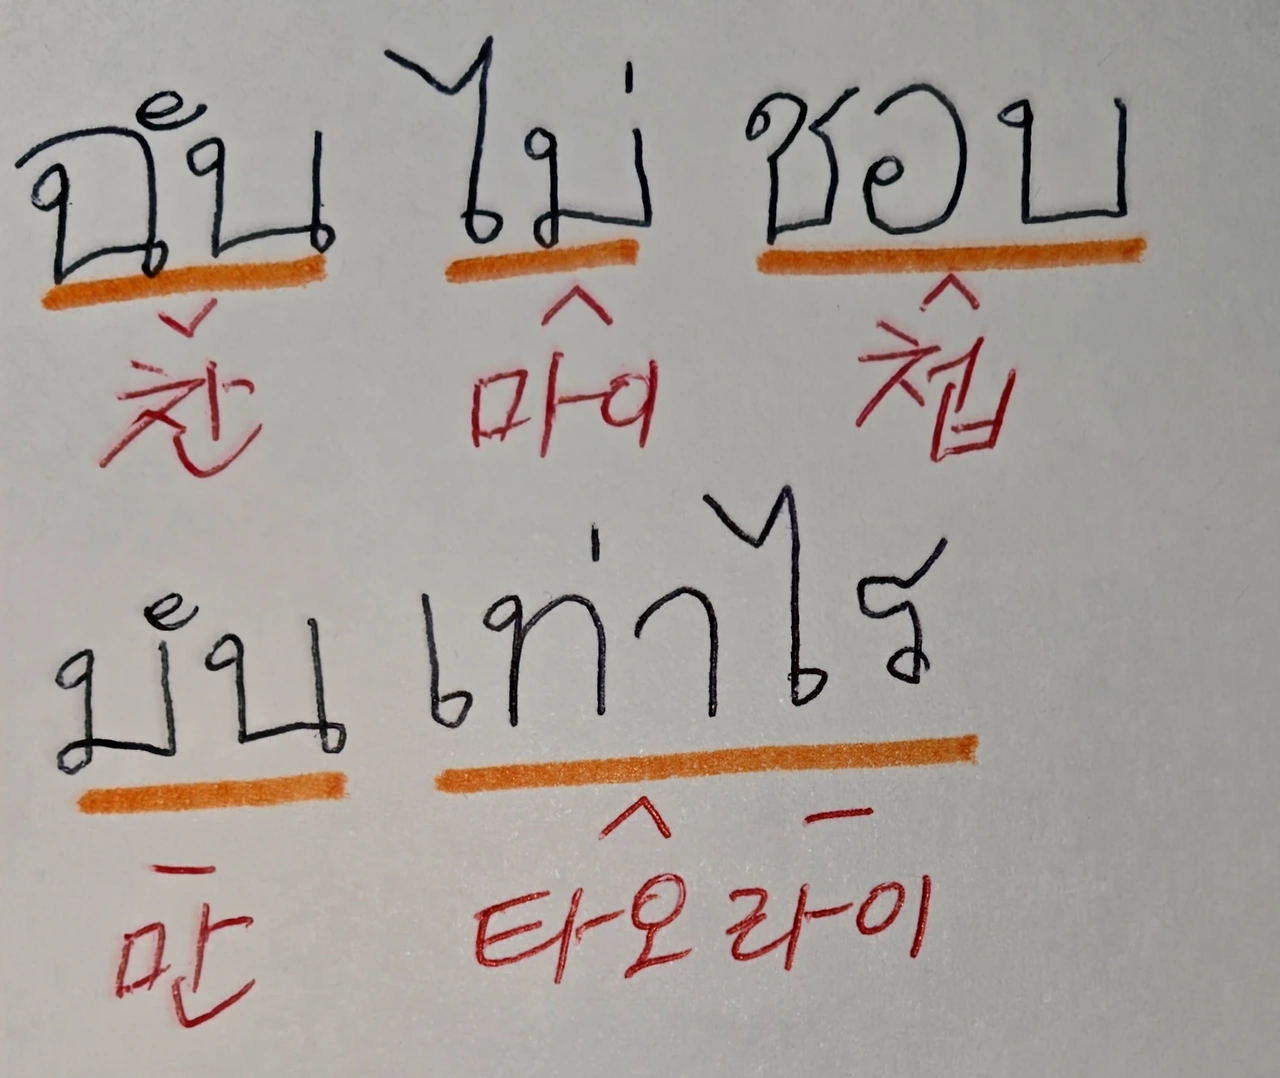 ฉัน ไม่ ชอบ
찬 마이 첩
มัน เท่าไร
만 타오라이